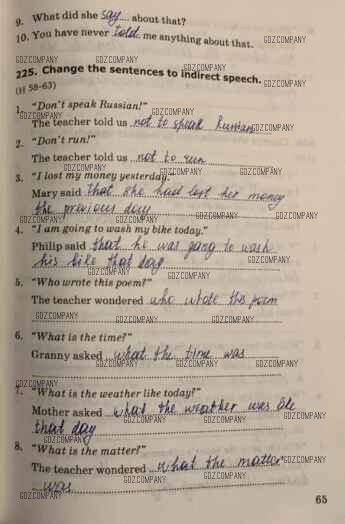 9. What did she say about that?
10. You have never told me anything about that.
GDZCOMPANY
GDZCOMPANY GDZCOMPANY GDZCOMPANY
225. Change the sentences to indirect speech.
(§§ 58-63)
GDZCOMPANY
1. "Don't speak Russian!"
GDZCOMPANY GDZCOMPANY
The teacher told us not to speak Russian
GDZCOMPANY
2. "Don't run!"
The teacher told us not to run
GDZCOMPANY GDZCOMPANY GDZCOMPANY
3. "I lost my money yesterday."
Mary said that she had lost her money
the previous day
GDZCOMPANY GDZCOMPANY GDZCOMPANY GDZCOMPANY
4. "I am going to wash my bike today."
Philip said that he was going to wash
his bike that day
GDZCOMPANY
GDZCOMPANY GDZCOMPANY
5. "Who wrote this poem?"
The teacher wondered who wrote this poem
GDZCOMPANY GDZCOMPANY GDZCOMPANY
6. "What is the time?"
Granny asked what the time was
GDZCOMPANY GDZCOMPANY GDZCOMPANY
GDZCOMPANY
7. "What is the weather like today?"
Mother asked what the weather was like
GDZCOMPANY GDZCOMPANY GDZCOMPANY
that day
GDZCOMPANY
8. "What is the matter?"
The teacher wondered what the matter
GDZCOMPANY GDZCOMPANY GDZCOMPANY
was
GDZCOMPANY
65